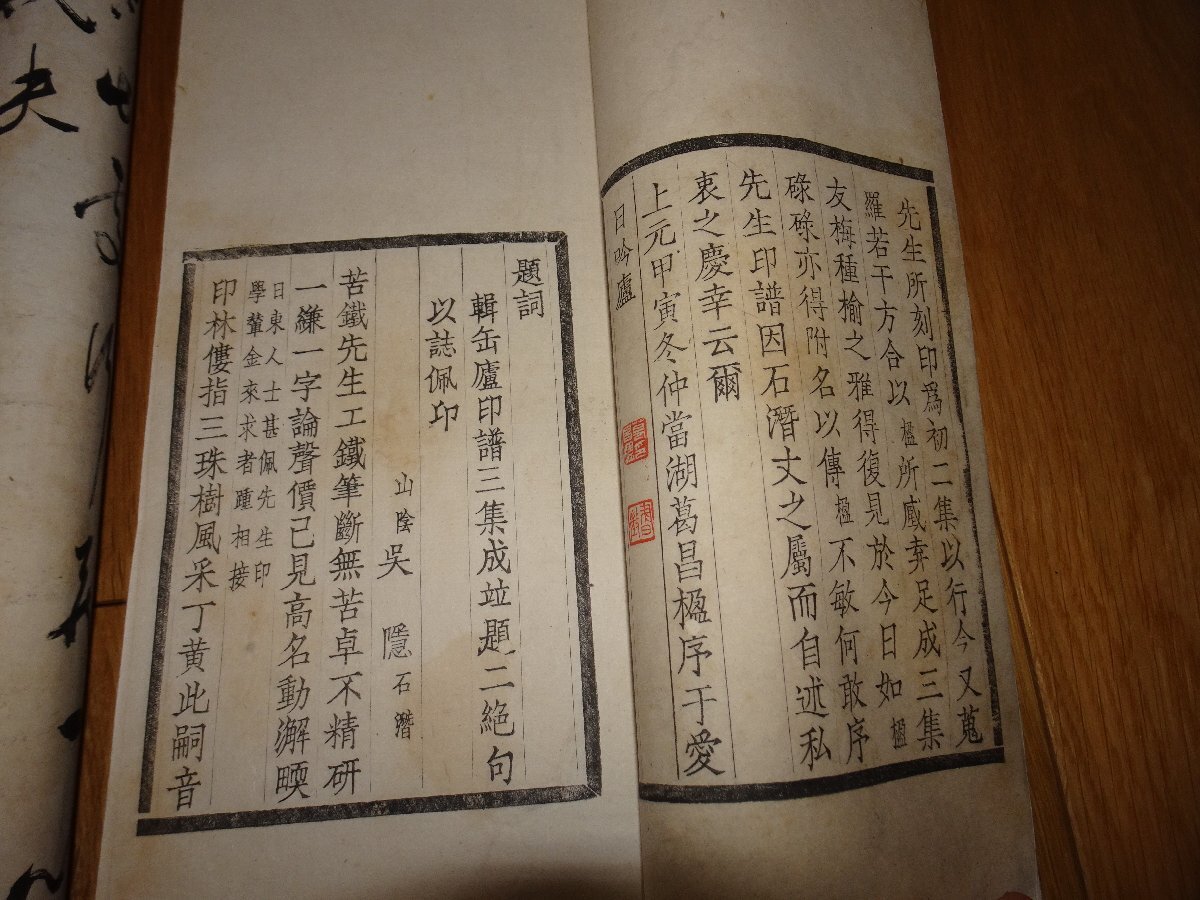 先生所刻印爲初二集以行今又蒐
羅若干方合以楹所藏幸足成三集
友梅種榆之雅得復見於今日如楹
碌碌亦得附名以傳楹不敏何敢序
先生印譜因石潛丈之屬而自述私
衷之慶幸云爾
上元甲寅冬仲當湖葛昌楹序于愛
日吟廬
題詞
輯缶廬印譜三集成竝題二絕句
以誌佩印
山陰吳隱石潛
苦鐵先生工鐵筆斷無苦卓不精研
一縑一字論聲價已見高名動澥
日東人士甚佩先生印
學輦金來求者踵相接
印林僂指三珠樹風采丁黃此嗣音
夫